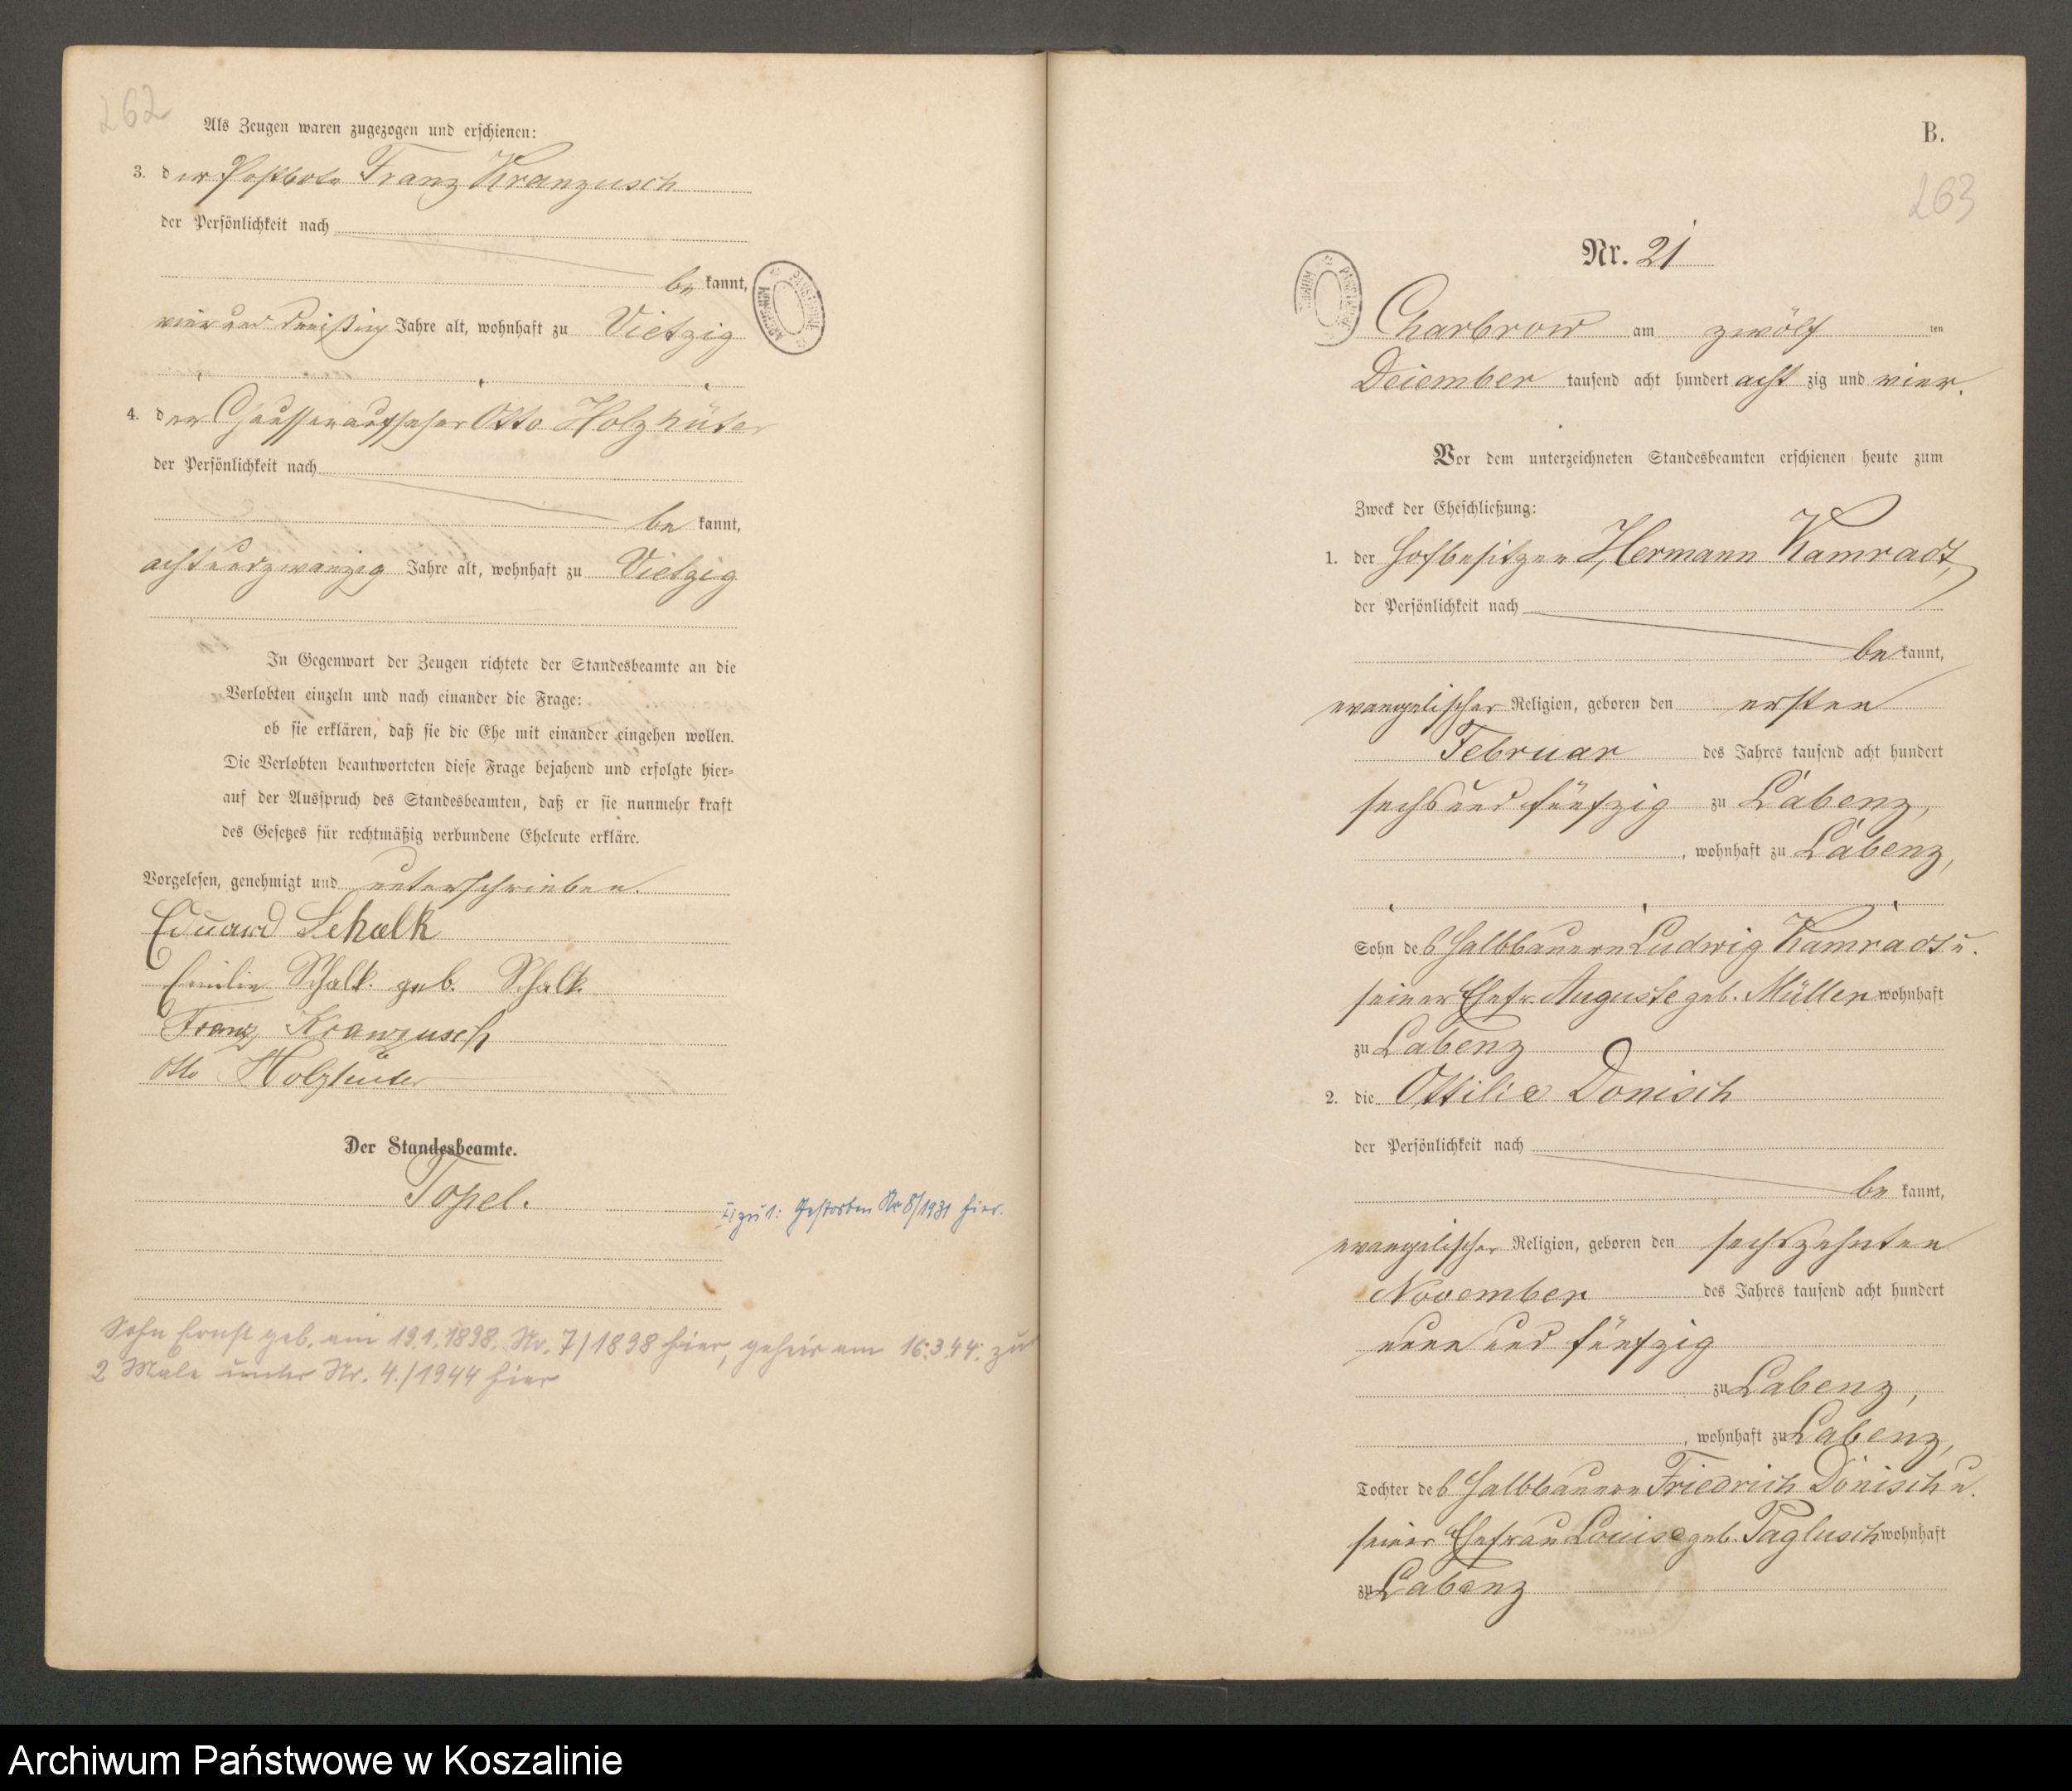 262
Als Zeugen waren zugezogen und erschienen:
3. der Postbote Franz Kranzusch
der Persönlichkeit nach
be kannt,
vier und dreißig Jahre alt, wohnhaft zu Vietzig
4. der Chausseeaufseher Otto Holzhüter
der Persönlichkeit nach
be kannt,
achtundzwanzig Jahre alt, wohnhaft zu Vietzig
In Gegenwart der Zeugen richtete der Standesbeamte an die
Verlobten einzeln und nach einander die Frage:
ob sie erklären, daß sie die Ehe mit einander eingehen wollen.
Die Verlobten beantworteten diese Frage bejahend und erfolgte hier-
auf der Ausspruch des Standesbeamten, daß er sie nunmehr kraft
des Gesetzes für rechtmäßig verbundene Eheleute erkläre.
Vorgelesen, genehmigt und unterschrieben.
Eduard Schalk
Emilie Schalk geb. Schalk
Franz Kranzusch
Otto Holzhüter
Der Standesbeamte.
Topel.
zu 1: Gestorben Nr 8/1931 hier.
Sohn Ernst geb. am 19.1.1898. Nr. 7/1898 hier, geheir am 16.3.44. zu
2 Male unter Nr. 4./1944 hier
B.
263
Nr. 21
Charbrow am zwölf ten
Dezember tausend acht hundert acht zig und vier.
Vor dem unterzeichneten Standesbeamten erschienen heute zum
Zweck der Eheschließung:
1. der Hofbesitzer Hermann Kamradt,
der Persönlichkeit nach
be kannt,
evangelischer Religion, geboren den ersten
Februar des Jahres tausend acht hundert
sechs und fünfzig zu Labenz,
, wohnhaft zu Labenz,
Sohn des Halbbauern Ludwig Kamradt u.
seiner Ehefr. Auguste geb. Müller wohnhaft
zu Labenz
2. die Ottilie Donisch
der Persönlichkeit nach
be kannt,
evangelischer Religion, geboren den sechszehnten
November des Jahres tausend acht hundert
neun und fünfzig
zu Labenz,
, wohnhaft zu Labenz,
Tochter des Halbbauern Friedrich Donisch u.
seiner Ehefrau Louise geb. Paglusch wohnhaft
zu Labenz
Archiwum Państwowe w Koszalinie